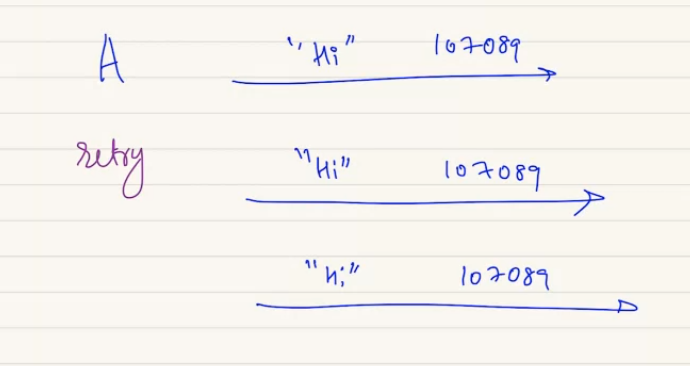 A "Hi" 107089
retry "Hi" 107089
"Hi" 107089